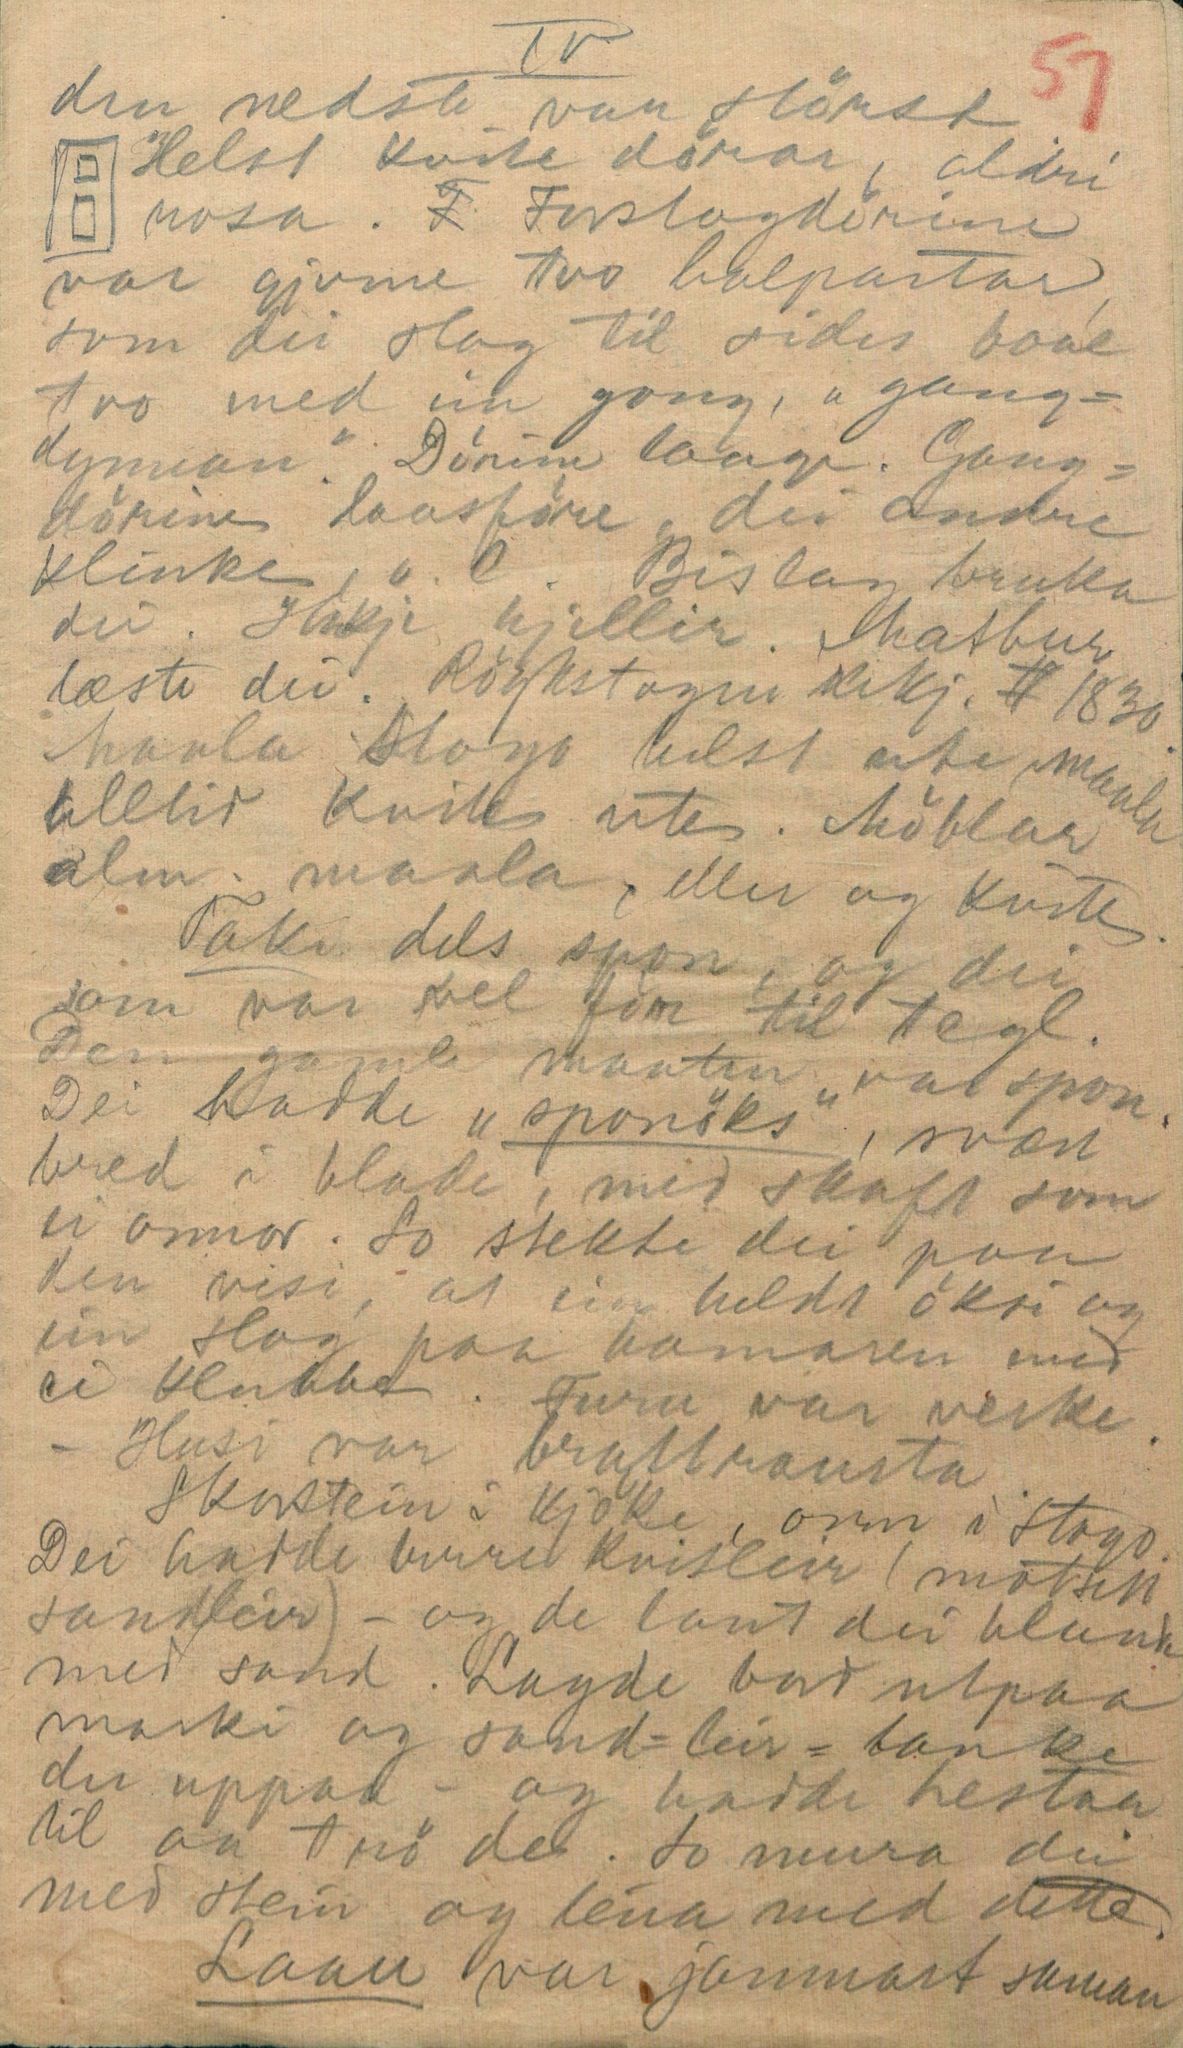 IV
57
den nedste var störst
Helst kvite dörar, aldri
rosa. F. Forstogdörine
var gjerne tvo halpartar,
som dei slog til sides baae
tvo med ein gong, "gang-
dynnan". Dörine laage. Gang-
dörine laasföre, dei andre
klinke, o. l. Bislag bruka
dei. Ikkje kjellir. Matbur
læste dei. Röykstogeu ikkj. 1830.
Maala Stogo helst ute maala
alltid kvite ute. Möblar
alm. maala, eller og kvite.
Take dels spon, og dei
som var vel för til tegl.
Den gamle maaten var spon.
Dei hadde "sponöks", svært
bred i blade, med skaft som
ei onnor. So stekte dei paa
den visi, at ein heldt öksi og
ein slog paa hamaren med
ei klubba. Furu var verke.
- Husi var brattrausta.
Skorstein i kjöke, omn i Stogo.
Dei hadde berre kvitleir (motsett
sandleir) - og de laut dei blanda
med sand. Lagde bord utpaa
marki og sand-leir- banke
der uppaa - og hadde hestar
til aa trö de. So mura dei
med stein og leira med dette.
Laaen var jammart saman